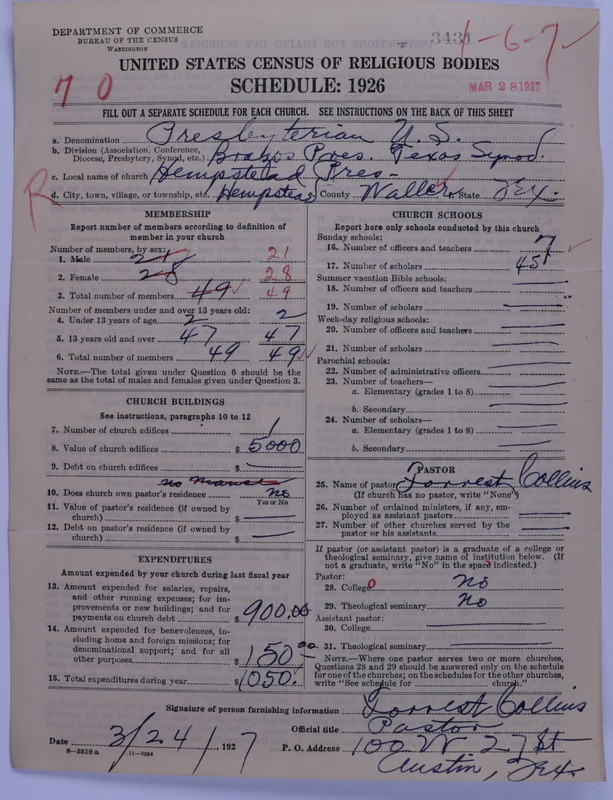 DEPARTMENT OF COMMERCE
BUREAU OF THE CENSUS
WASHINGTON
3431
1-6-7
UNITED STATES CENSUS OF RELIGIOUS BODIES
SCHEDULE: 1926
70
MAR 28 1927
FILL OUT A SEPARATE SCHEDULE FOR EACH CHURCH. SEE INSTRUCTIONS ON THE BACK OF THIS SHEET
a. Denomination Presbyterian U.S.
b. Division (Association, Conference, Diocese, Presbytery, Synod, etc.) Brazos Pres. Texas Synod.
c. Local name of church Hempstead Pres-
R
d. City, town, village, or township, etc. Hempstead County Waller State Tex.
MEMBERSHIP
Report number of members according to definition of
member in your church
Number of members, by sex:
1. Male 21 21
2. Female 28 28
3. Total number of members 49 49
Number of members under and over 13 years old:
4. Under 13 years of age 2 2
5. 13 years old and over 47 47
6. Total number of members 49 49
NOTE.—The total given under Question 6 should be
same as the total of males and females given under Question 3.
CHURCH BUILDINGS
See instructions, paragraphs 10 to 12
7. Number of church edifices 1
8. Value of church edifices $ 5000
9. Debt on church edifices $ —
no Manse
10. Does church own pastor's residence no
Yes or No
11. Value of pastor's residence (if owned by
church) $ —
12. Debt on pastor's residence (if owned by
church) $ —
EXPENDITURES
Amount expended by your church during last fiscal year
13. Amount expended for salaries, repairs,
and other running expenses; for im-
provements or new buildings; and for
payments on church debt $ 900.00
14. Amount expended for benevolences, in-
cluding home and foreign missions; for
denominational support; and for all
other purposes $ 150.00
15. Total expenditures during year $ 1050.
CHURCH SCHOOLS
Report here only schools conducted by this church
Sunday schools:
16. Number of officers and teachers 7
17. Number of scholars 45
Summer vacation Bible schools:
18. Number of officers and teachers —
19. Number of scholars —
Week-day religious schools:
20. Number of officers and teachers —
21. Number of scholars —
Parochial schools:
22. Number of administrative officers —
23. Number of teachers—
a. Elementary (grades 1 to 8) —
b. Secondary —
24. Number of scholars—
a. Elementary (grades 1 to 8) —
b. Secondary —
PASTOR
25. Name of pastor Forrest Collins
(If church has no pastor, write "None")
26. Number of ordained ministers, if any, em-
ployed as assistant pastors —
27. Number of other churches served by the
pastor or his assistants —
If pastor (or assistant pastor) is a graduate of a college or
theological seminary, give name of institution below. (If
not a graduate, write "No" in the space indicated.)
Pastor:
28. College 0 no
29. Theological seminary no
Assistant pastor:
30. College —
31. Theological seminary —
NOTE.—Where one pastor serves two or more churches,
Questions 28 and 29 should be answered only on the schedule
for one of the churches; on the schedules for the other churches,
write "See schedule for church."
Signature of person furnishing information Forrest Collins
Official title Pastor
Date 3/24/1927 P. O. Address 100 W 27 St
8—5518a 11—9084
Austin, Tex